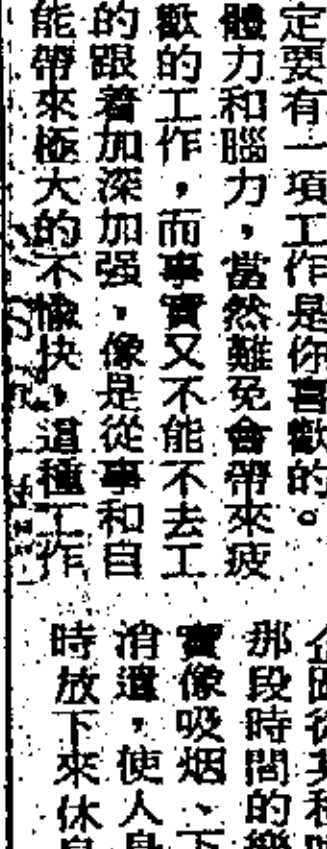 定要有一項工作是你喜歡的。
體力和腦力，當然難免會帶來疲
歡的工作，而事實又不能不去工
的跟着加深加强，像是從事和自
能帶來極大的不愉快，這種工作
那段時間的
實像吸烟、下
消遣，使人
時放下來休息